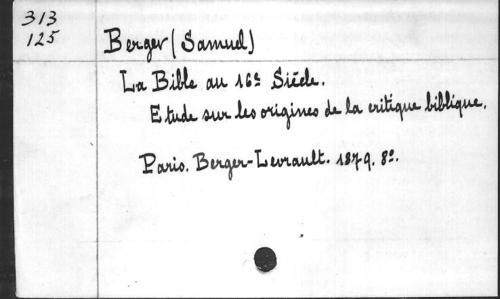 313
125
Berger (Samuel)
La Bible au 16e Siècle.
Etude sur les origines de la critique biblique.
Paris. Berger-Levrault. 1879. 8º.